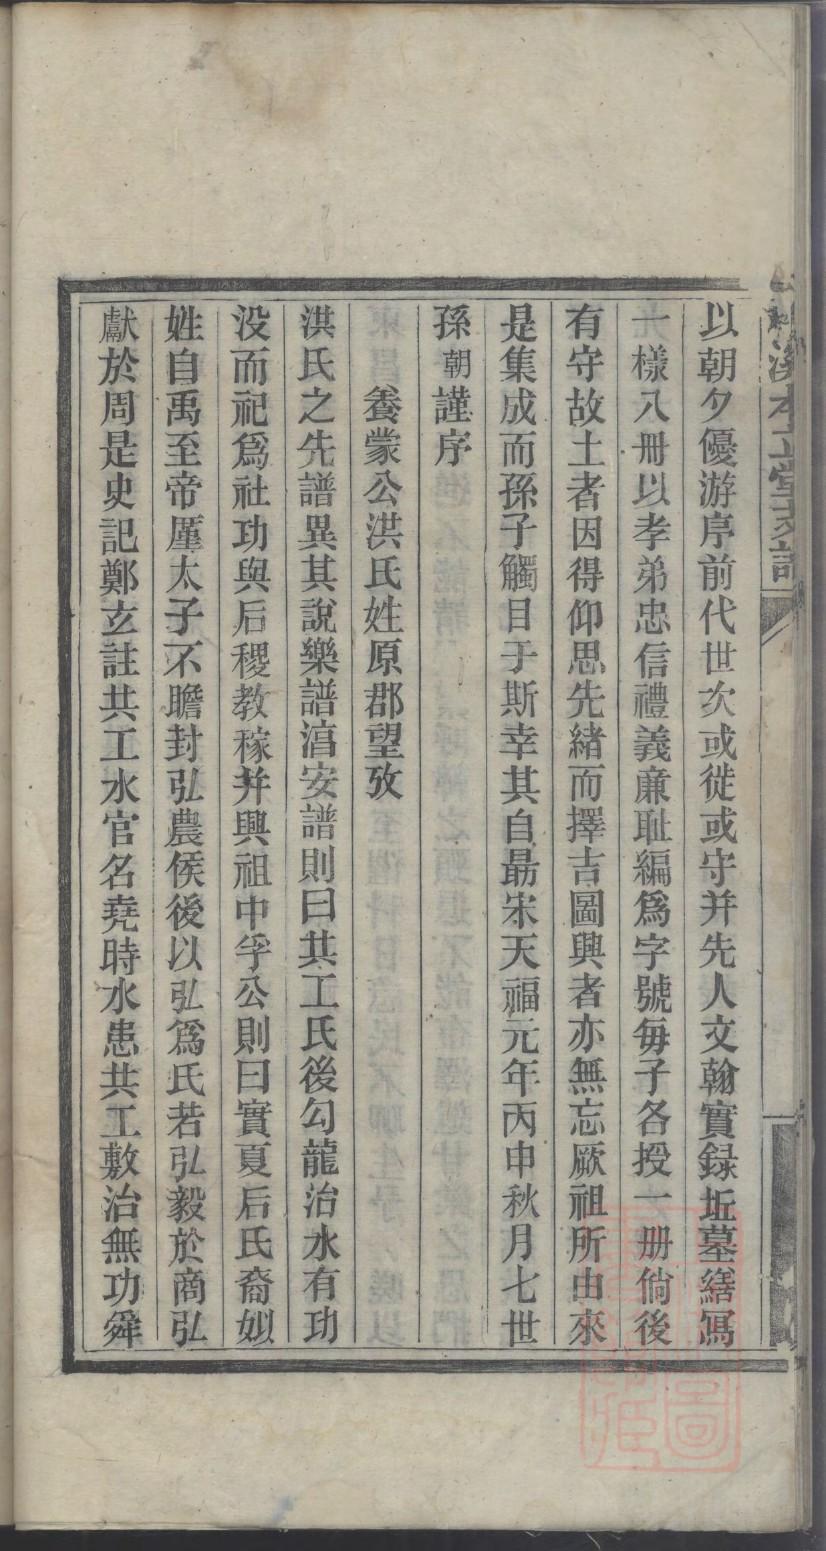 以朝夕優游序前代世次或徙或守并先人文翰實録坵墓繕冩
一樣入冊以孝弟忠信禮義亷耻編爲字號毎子各授一冊倘後
有守故土者因得仰思先緒而擇吉圖興者亦無忘厥祖所由來
是集成而孫子觸目于斯幸其自勗宋天福元年丙申秋月七世
孫朝謹序
養蒙公洪氏姓原郡望攷
洪氏之先譜異其說樂譜淯安譜則曰共工氏後勾龍治水有功
没而祀爲社功與后稷教稼并興祖中孚公則曰實夏后氏裔姒
姓自禹至帝厪太子不瞻封弘農侯後以弘爲氏若弘毅於商弘
獻於周是史記鄭玄註共工水官名堯時水患共工敷治無功舜
本立堂支譜